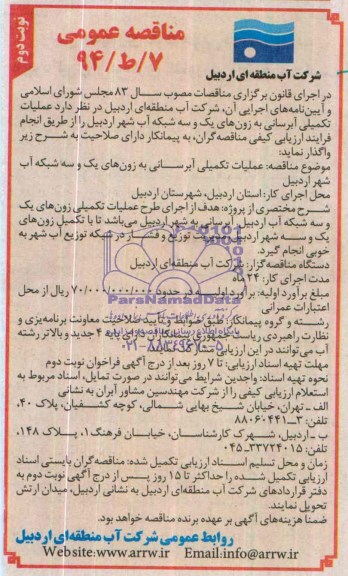 نوبت دوم
مناقصه عمومی
۷/ط/۹۴
شرکت آب منطقه ای اردبیل
در اجرای قانون برگزاری مناقصات مصوب سال ۸۳ مجلس شورای اسلامی
و آیین‌نامه‌های اجرایی آن، شرکت آب منطقه‌ای اردبیل در نظر دارد عملیات
تکمیلی آبرسانی به زون‌های یک و سه شبکه آب شهر اردبیل را از طریق انجام
فرایند ارزیابی کیفی مناقصه‌گران، به پیمانکار دارای صلاحیت به شرح زیر
واگذار نماید:
موضوع مناقصه: عملیات تکمیلی آبرسانی به زون‌های یک و سه شبکه آب
شهر اردبیل
محل اجرای کار: استان اردبیل، شهرستان اردبیل
شرح مختصری از پروژه: هدف از اجرای طرح عملیات تکمیلی زون‌های یک
و سه شبکه آب اردبیل آبرسانی به شهر اردبیل می‌باشد تا با تکمیل زون‌های
یک و سه شهر اردبیل مدیریت توزیع و فشار در شبکه توزیع آب شهر به
خوبی انجام گیرد.
دستگاه مناقصه‌گزار: شرکت آب منطقه‌ای اردبیل
مدت اجرای کار: ۲۴ ماه
مبلغ برآورد اولیه: برآورد اولیه در حدود ۷۰/۰۰۰/۰۰۰/۰۰۰ ریال از محل
اعتبارات عمرانی
رشته و گروه پیمانکار: طبق ضوابط و تایید صلاحیت معاونت برنامه‌ریزی و
نظارت راهبردی ریاست جمهوری پیمانکاران دارای پایه ۴ جدید و بالاتر رشته
آب می‌توانند در این ارزیابی مشارکت نمایند.
مهلت تهیه اسناد ارزیابی: تا ۷ روز بعد از درج آگهی فراخوان نوبت دوم
نحوه تهیه اسناد: واجدین شرایط می‌توانند در صورت تمایل، اسناد مربوط به
استعلام ارزیابی کیفی را از شرکت مهندسین مشاور ایران به نشانی
الف - تهران، خیابان شیخ بهایی شمالی، کوچه کشفیان، پلاک ۴۰،
تلفن: ۳-۸۸۰۶۰۴۴۱
ب - اردبیل، شهرک کارشناسان، خیابان فرهنگ۱، پلاک ۱۴۸،
تلفن: ۳۳۷۲۴۰۱۵-۰۴۵
زمان و محل تسلیم اسناد ارزیابی تکمیل شده: مناقصه‌گران بایستی اسناد
ارزیابی تکمیل شده را حداکثر تا ۱۵ روز پس از درج آگهی نوبت دوم به
دفتر قراردادهای شرکت آب منطقه‌ای اردبیل به نشانی اردبیل، میدان ارتش
تحویل نمایند.
ضمنا هزینه‌های آگهی بر عهده برنده مناقصه خواهد بود.
روابط عمومی شرکت آب منطقه‌ای اردبیل
Website:www.arrw.ir Email:info@arrw.ir
ParsNamadData
۰۲۱-۸۸۳۴۹۶۷۰-۵